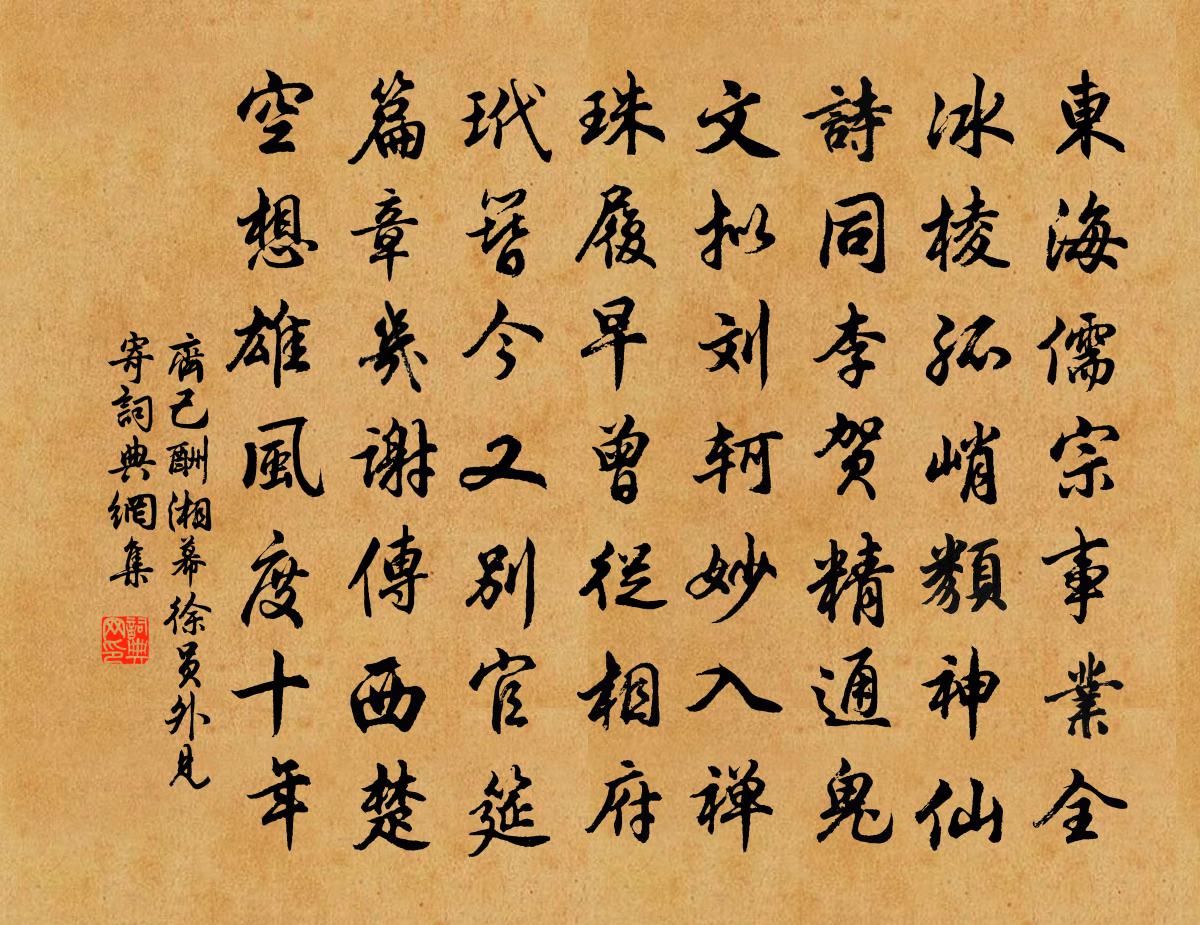 東海儒宗事業全
冰棱孤峭類神仙
詩同李贺精通鬼
文拟刘轲妙入禅
珠履早曾從相府
玳簪今又別官筵
篇章幾谢傳西楚
空想雄風度十年
齊己酬湘幕徐員外見
寄詞典網集
詞典
网印